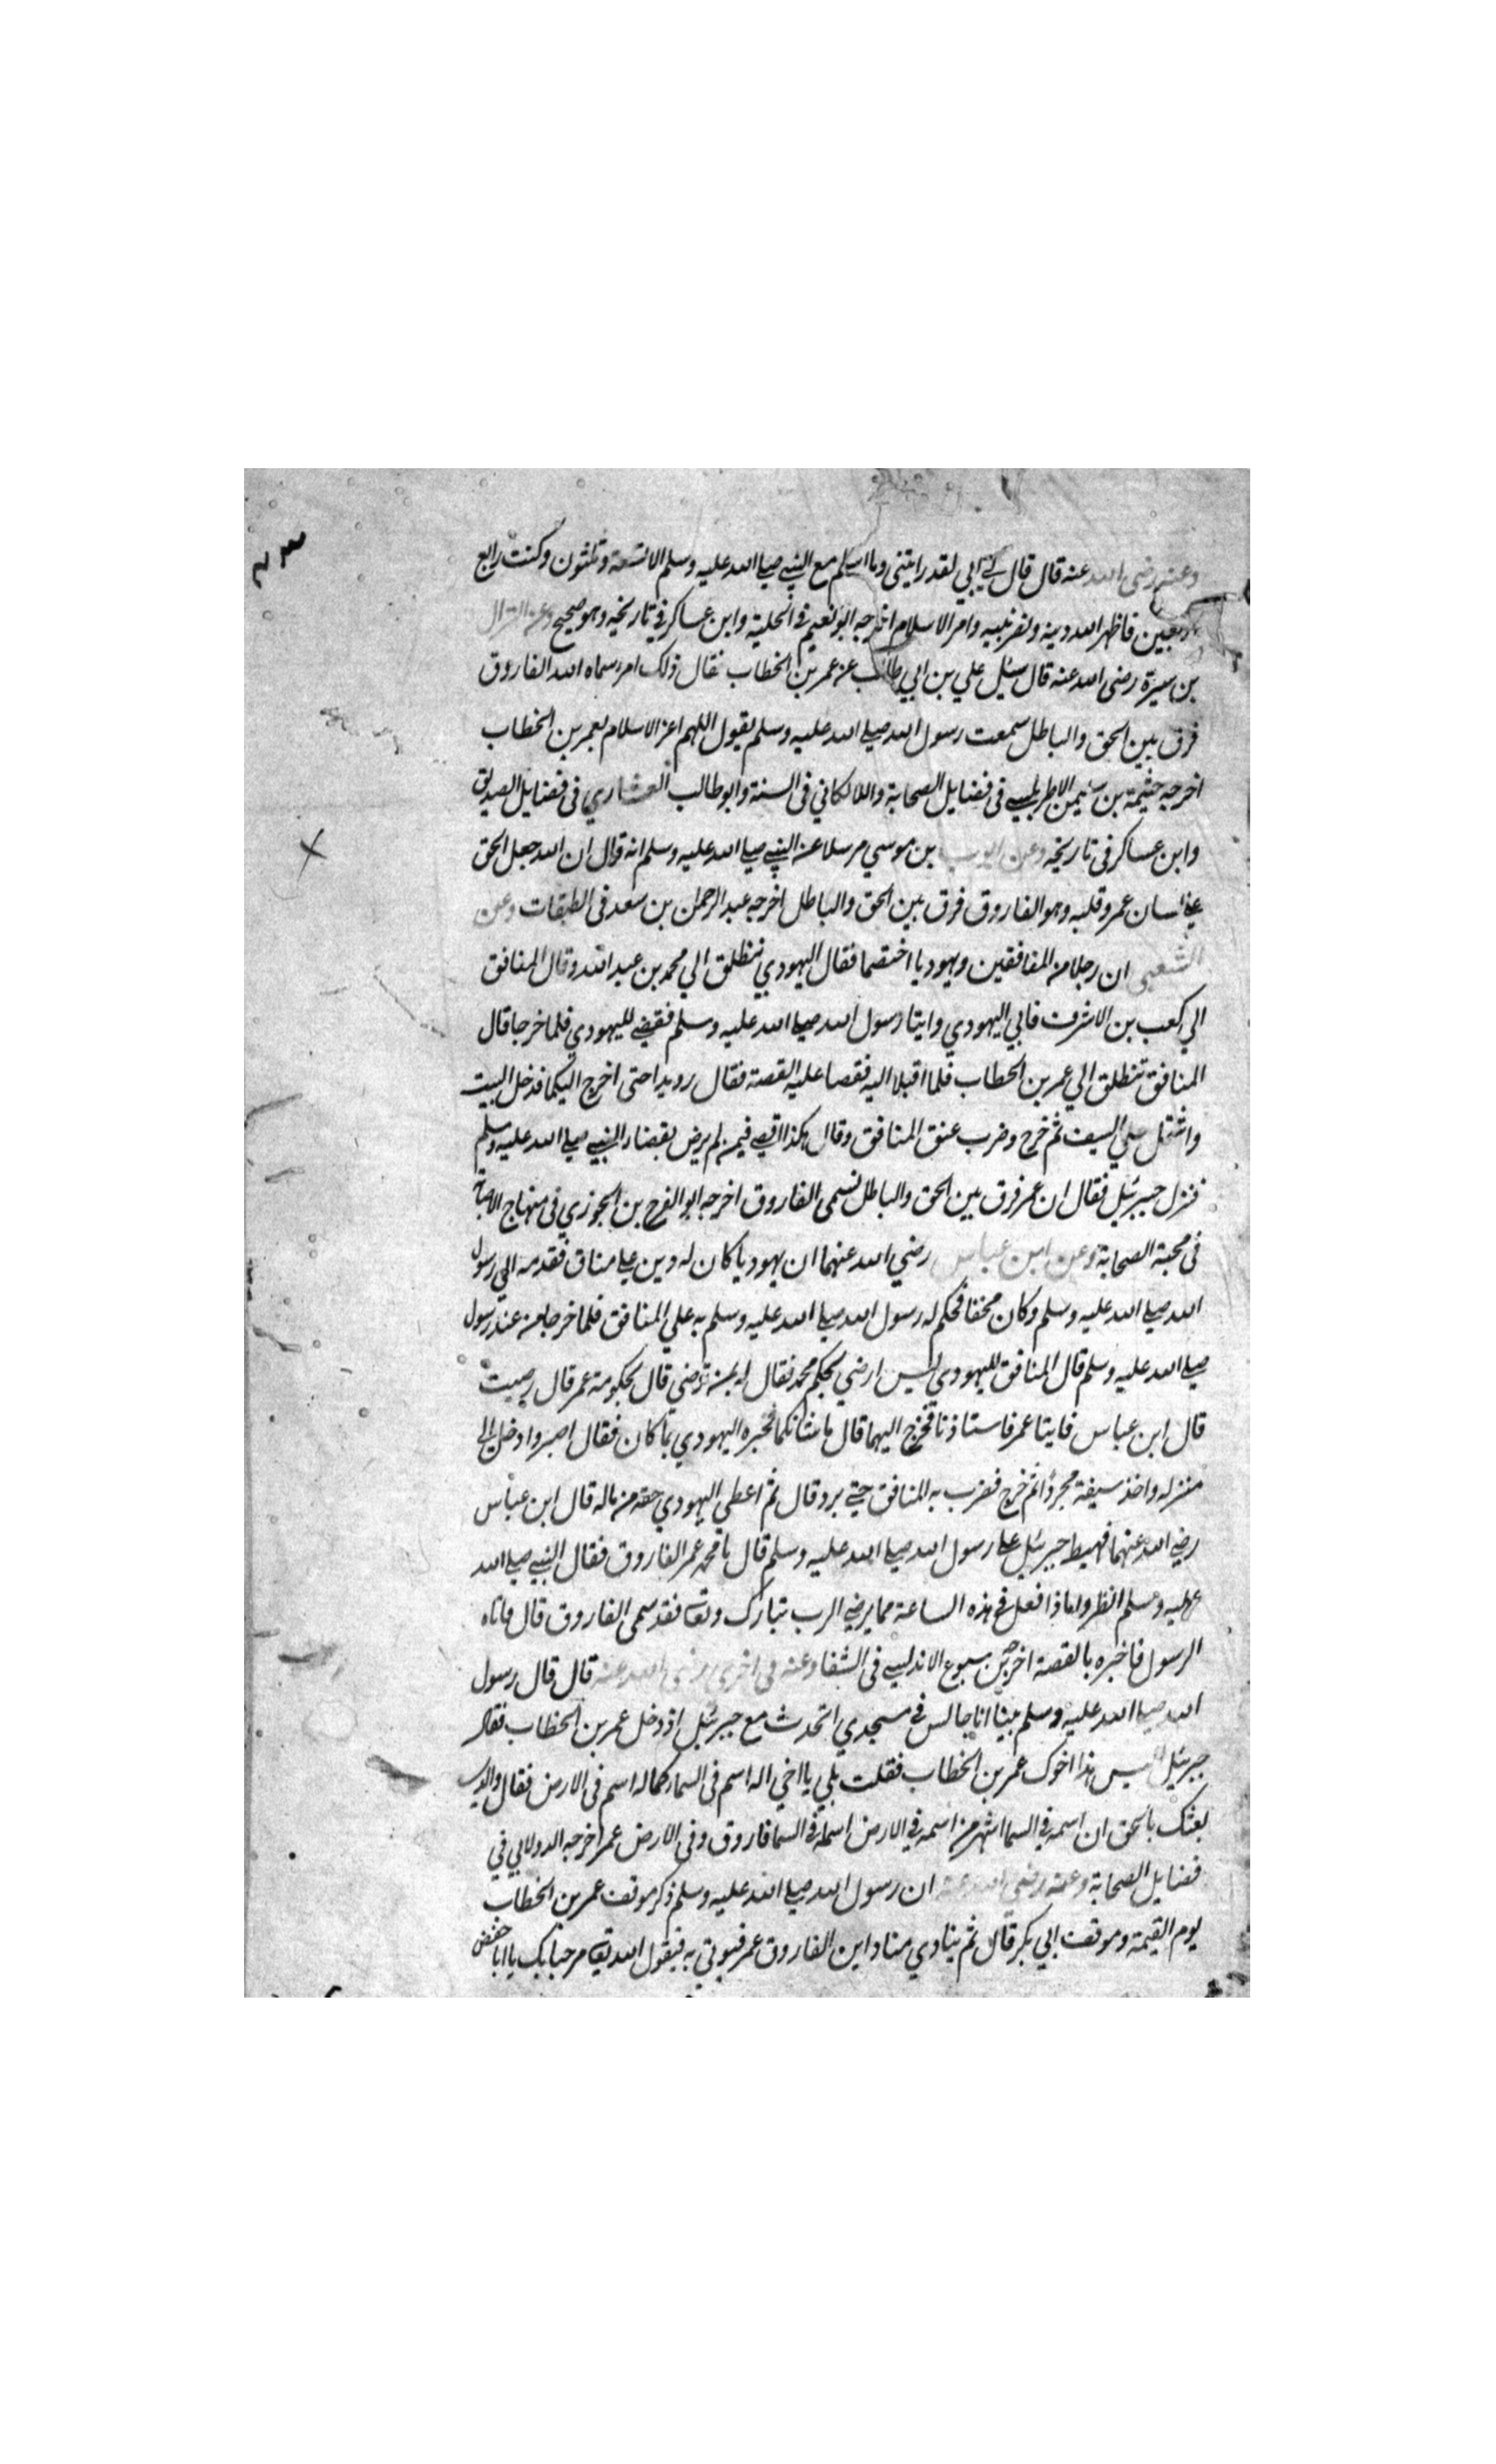 وعنه رضى الله عنه قال قال لي ابي لقد رايتنى وما اسلم مع النبي صلى الله عليه وسلم الا تسعة وثلثون وكنت رابع
اربعين فاظهر الله دينه ونصر نبيه وامر الاسلام اخرجه ابو نعيم في الحلية وابن عساكر في تاريخه وهو صحيح وعن النزال
بن سبرة رضى الله عنه قال سئل علي بن ابي طالب عن عمر بن الخطاب فقال ذلك امرء سماه الله الفاروق
فرق بين الحق والباطل سمعت رسول الله صلى الله عليه وسلم يقول اللهم اعز الاسلام بعمر بن الخطاب
اخرجه خيثمة بن سليمن الاطربلسي فى فضايل الصحابة واللالكاني فى السنة وابو طالب العشاري فى فضايل الصديق
وابن عساكر فى تاريخه وعن ايوب بن موسي مرسلا عن النبي صلى الله عليه وسلم انه قال ان الله جعل الحق
على لسان عمر وقلبه وهو الفاروق فرق بين الحق والباطل اخرجه عبد الرحمن بن سعد فى الطبقات وعن
الشعبى ان رجلا من المنافقين ويهوديا اختصما فقال اليهودي ننطلق الي محمد بن عبد الله وقال المنافق
الي كعب بن الاشرف فابي اليهودي وايتا رسول الله صلى الله عليه وسلم فقضى لليهودي فلما خرجا قال
المنافق ننطلق الي عمر بن الخطاب فلما اقبلا اليه فقصا عليه القصة فقال رويدا حتى اخرج اليكما فدخل البيت
واشتمل علي السيف ثم خرج وضرب عنق المنافق وقال هكذا اقضي فيمن لم يرض بقضاء النبي صلى الله عليه وسلم
فنزل جبرئيل فقال ان عمر فرق بين الحق والباطل فسمى الفاروق اخرجه ابو الفرج بن الجوزي فى منهاج الاصابة
فى محبة الصحابة وعن ابن عباس رضي الله عنهما ان يهوديا كان له دين على منافق فقدمه الي رسول
الله صلى الله عليه وسلم وكان محقا فحكم له رسول الله صلى الله عليه وسلم به علي المنافق فلما خرجا من عند رسول
صلى الله عليه وسلم قال المنافق لليهودي ليس ارضي بحكم محمد فقال له بمن ترضى قال بحكومة عمر قال رضيت
قال ابن عباس فايتا عمر فاستاذنا فخرج اليهما قال ما شانكما فخبره اليهودي بما كان فقال اصبرا وادخل الى
منزله واخذ سيفه مجردا ثم خرج فضرب به المنافق حتي برد قال ثم اعطي اليهودي حقه من ماله قال ابن عباس
رضي الله عنهما فهبط جبرئيل على رسول الله صلى الله عليه وسلم قال يا محمد عمر الفاروق فقال النبي صلى الله
عليه وسلم انظروا ماذا فعل في هذه الساعة مما يرضي الرب تبارك وتعالى فقد سمى الفاروق قال فاتاه
الرسول فاخبره بالقصة اخرجه بن سبوع الاندلسي فى الشفا وعنه فى اخرى رضى الله عنه قال قال رسول
الله صلى الله عليه وسلم بينا انا جالس في مسجدي اتحدث مع جبرئيل اذ دخل عمر بن الخطاب فقال
جبرئيل اليس هذا اخوك عمر بن الخطاب فقلت بلي يا اخي اله اسم فى السماء كما له اسم فى الارض فقال والذي
بعثك بالحق ان اسمه في السما اشهر من اسمه في الارض اسمه في السما فاروق وفى الارض عمر اخرجه الدولابي في
فضايل الصحابة وعنه رضي الله عنه ان رسول الله صلى الله عليه وسلم ذكر موقف عمر بن الخطاب
يوم القيمة وموقف ابي بكر قال ثم ينادي مناد اين الفاروق عمر فيوتي به فيقول الله تعالى مرحبا بك يا ابا حفص